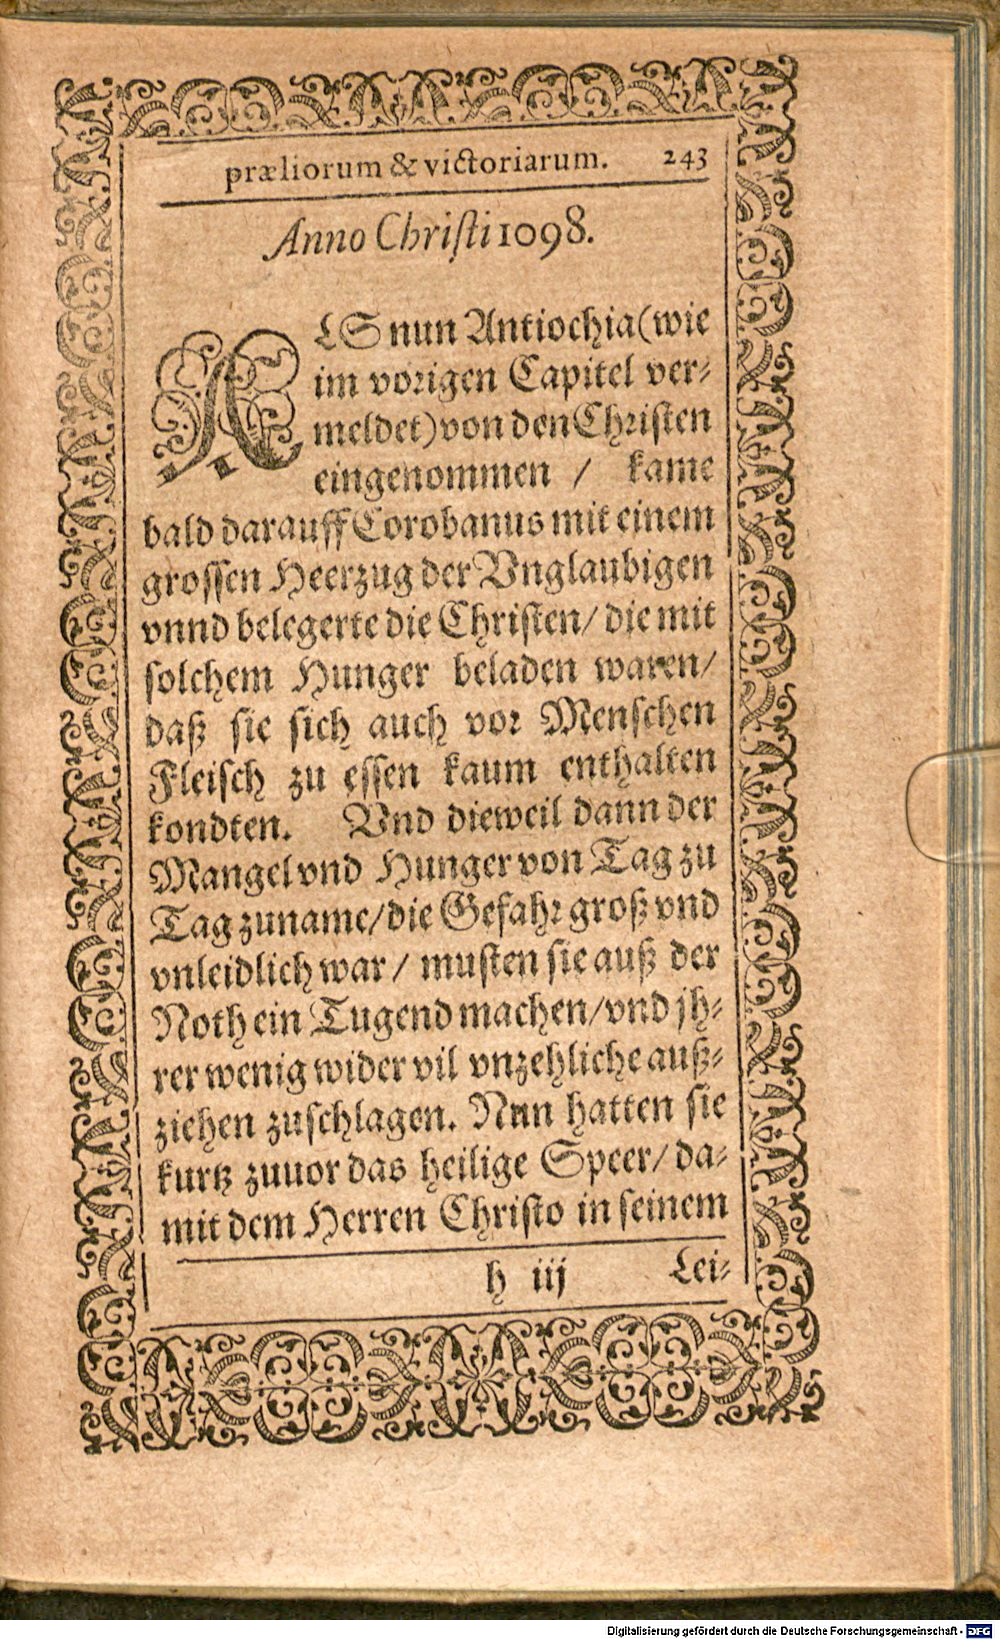 præliorum & victoriarum. 243
Anno Christi 1098.
ALS nun Antiochia (wie
im vorigen Capitel ver⸗
meldet) von den Christen
eingenommen / kame
bald darauff Corobanus mit einem
grossen Heerzug der Vnglaubigen
vnnd belegerte die Christen/ die mit
solchem Hunger beladen waren/
daß sie sich auch vor Menschen
Fleisch zu essen kaum enthalten
kondten. Vnd dieweil dann der
Mangel vnd Hunger von Tag zu
Tag zuname/ die Gefahr groß vnd
vnleidlich war / musten sie auß der
Noth ein Tugend machen/ vnd jh⸗
rer wenig wider vil vnzehliche auß⸗
ziehen zuschlagen. Nun hatten sie
kurtz zuuor das heilige Speer/ da⸗
mit dem Herren Christo in seinem
h iij Lei⸗
Digitalisierung gefördert durch die Deutsche Forschungsgemeinschaft - DFG